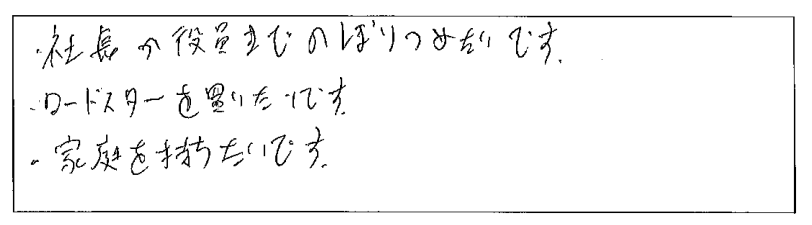 ・社長か役員までのぼりつめたいです.
・ロードスターを買いたいです
・家庭を持ちたいです.